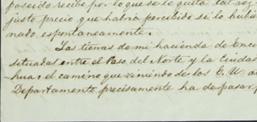 poseido recibe por lo que se le quita tal vez
justo precio que habria percibido si lo hubi
nado, espontaneamente.
Las tierras de mi hacienda de Enci
situadas entre el Paso del Norte y la Ciudad
hua: el camino que viniendo de los E. U. a
Departamento precisamente ha de pasar p